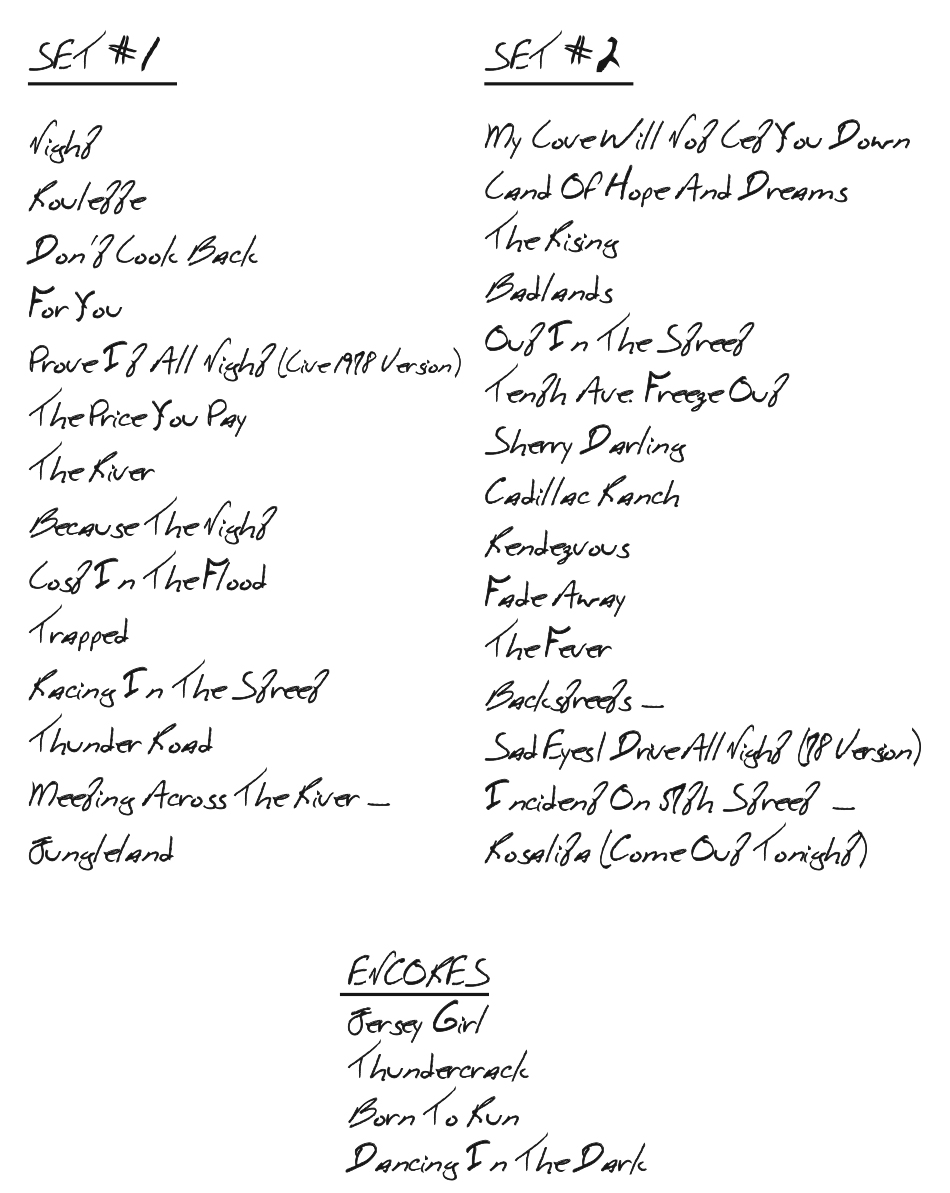 SET #1
Night
Roulette
Don't Look Back
For You
Prove It All Night (Live 1978 Version)
The Price You Pay
The River
Because The Night
Lost In The Flood
Trapped
Racing In The Street
Thunder Road
Meeting Across The River —
Jungleland
SET #2
My Love Will Not Let You Down
Land Of Hope And Dreams
The Rising
Badlands
Out In The Street
Tenth Ave. Freeze Out
Sherry Darling
Cadillac Ranch
Rendezvous
Fade Away
The Fever
Backstreets —
Sad Eyes/ Drive All Night (78 Version)
Incident On 57th Street —
Rosalita (Come Out Tonight)
ENCORES
Jersey Girl
Thundercrack
Born To Run
Dancing In The Dark